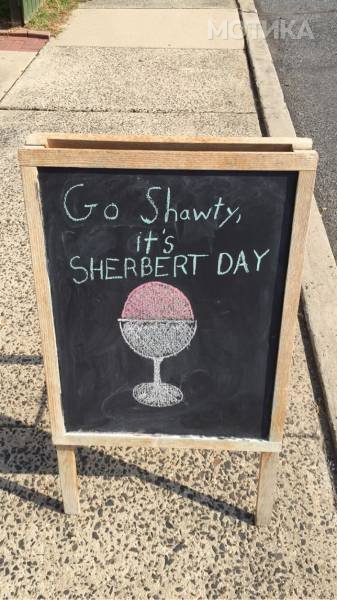 МОТИКА
Go Shawty,
it's
SHERBERT DAY